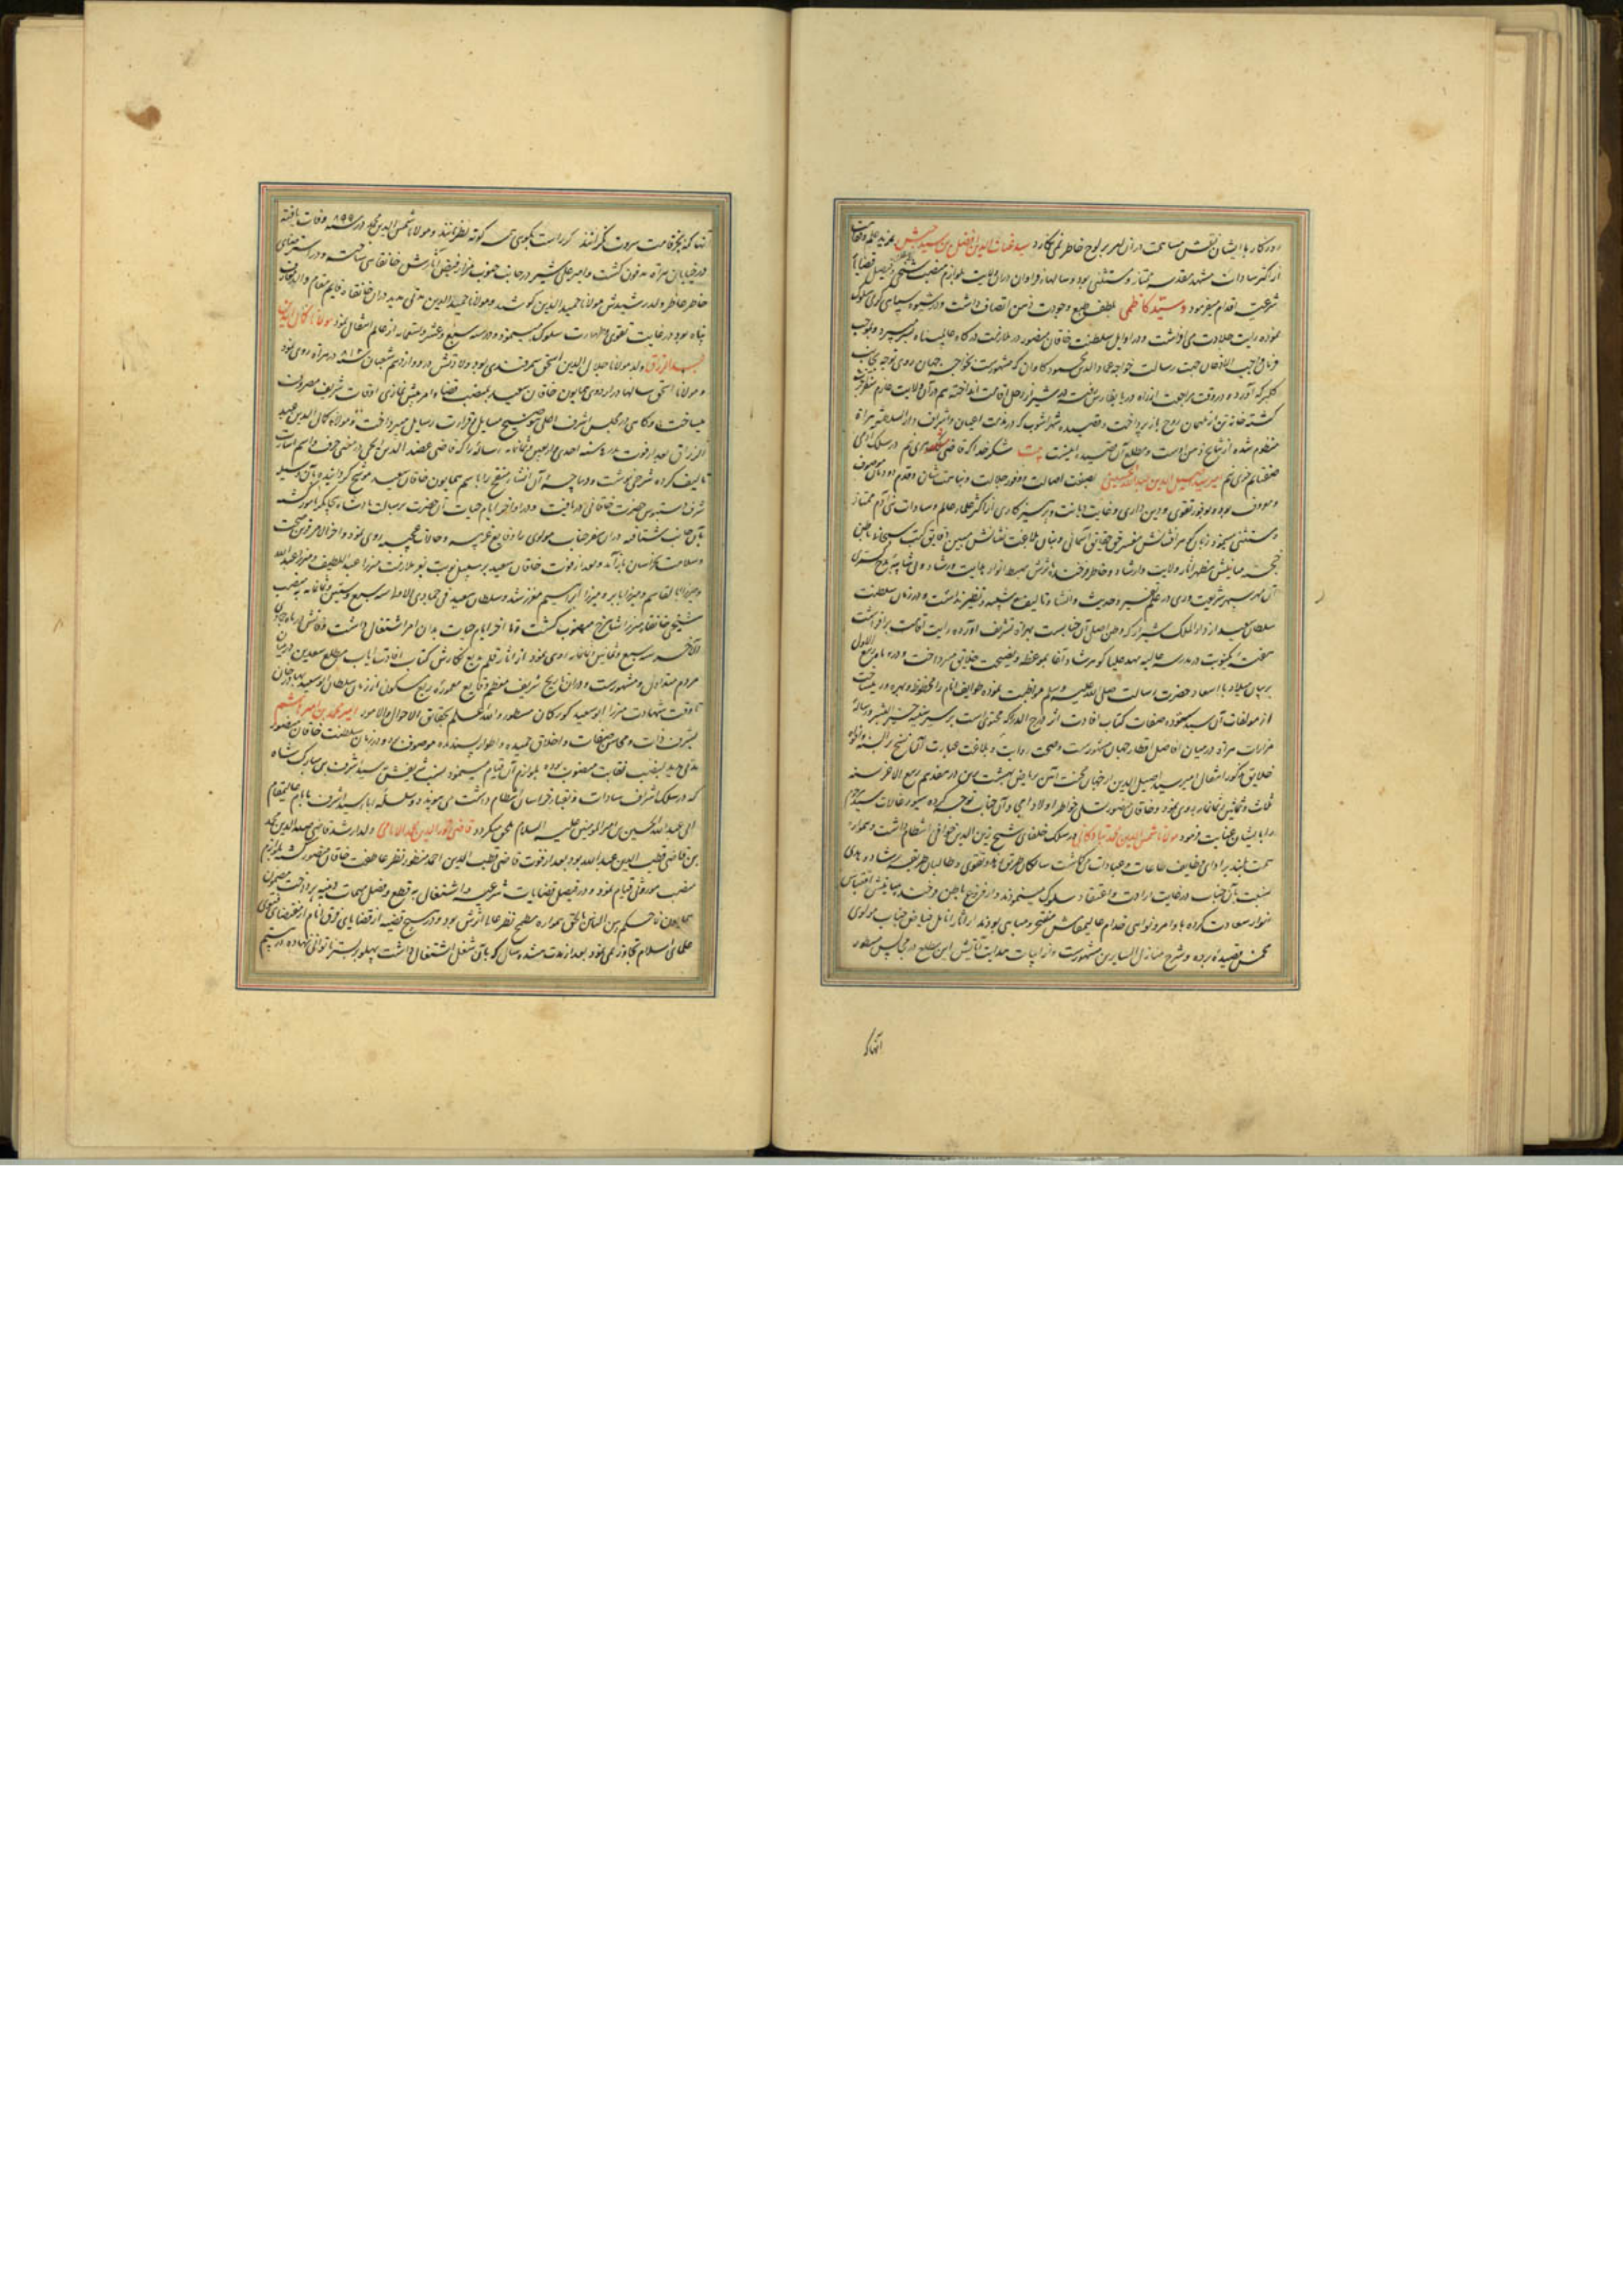 روزگار با ایشان نقش مساهمت در آن امر بر لوح خاطر نمی‌نگارد سید غیاث الدین افضل بن سید حسن بمزید علم و تقوی
از اکثر سادات مشهد مقدسه ممتاز و مستثنی بود و سالها فراوان در آن ولایت بلوازم منصب شیخ الاسلامی و فیصل قضایا
شرعیت اقدام میفرمود و سید کاظمی بلطف طبع و جودت ذهن اتصاف داشت و در شیوه سپاهی گری سلوک
نموده رایت جلادت می‌افراشت و در اوایل سلطنت خاقان منصور در ملازمت درگاه عالم پناه بسر میبرد و بموجب
فرمان واجب الاذعان جهت رسالت خواجه عماد الدین محمود کاوان که مشهورست بخواجه جهان روی توجه بجانب
کلبرکه آورده در وقت مراجعت از راه دریا بفارس رفت در شیراز رحل اقامت انداخته هم در آن ولایت عازم سفر آخرت
کشته خانه تن از مهمان روح باز پرداخت و قصیده شهر آشوب که در مذمت اعیان و اشراف دار السلطنه هراة
منظوم شده از نتایج ذهن اوست و مطلع آن قصیده اینست بیت شکر خدا که قاضی شهر هری نیم در سلک آدمی
صفتانم خری نیم امیر سید اصیل الدین عبد الله الحسینی بصفت اصالت و وفور جلالت و نباهت شان و قدم دودمان موصوف
و معروف بوده بوفور تقوی و دین داری و غایت دیانت و پرهیزکاری از اکثر علماء عالم و سادات بنی آدم ممتاز
و مستثنی مینمود زبان گوهرافشانش مفسر حقایق آسمانی و بنان بلاغت نشانش مبین دقایق کتب سبحانی باطن
خجسته میامنش مظهر آثار ولایت و ارشاد و خاطر فرخنده مآثرش مهبط انوار هدایت و رشاد بی شایبه مدح گستری
آن مهر سپهر شریعت پروری در علم تفسیر و حدیث و انشاء و تالیف شبیه و نظیر نداشت و در زمان سلطنت
سلطان سعید از دار الملک شیراز که وطن اصلی آن جناب است بهراة تشریف آورده رایت اقامت برافراشت
هفتهٔ یکنوبت در مدرسه عالیه مهد علیا گوهرشاد آغا بموعظه و نصیحت خلایق میپرداخت و در ماه ربیع الاول
بر بیان میلاد با اسعاد حضرت رسالت صلی الله علیه و سلم مواظبت نموده طوایف انام را محظوظ و بهره‌ور میساخت
از مولفات آن سید ستوده صفات کتاب افادت اثر درج الدرر که محتوی است بر سیر سنیه خیر البشر و رساله
مزارات هراة در میان افاضل اقطار جهان مشهورست و صحت روایت و بلاغت عبارت آن نسخ بر السنه و افواه
خلایق مذکور انتقال امیر سید اصیل الدین از جهان محنت آئین بریاض بهشت برین در هفدهم ربیع الآخر سنه
ثلاث و ثمانین و ثمانمایه روی نمود و خاقان منصور بتسلی خواطر اولاد امجاد آن جناب توجه کرده سیور غالات سید مرحوم
را بایشان عنایت فرمود مولانا شمس الدین محمد تبادکانی در سلک خلفای شیخ زین الدین خوافی انتظام داشت و همواره
همت بلند بر ادای وظایف طاعات و عبادات می‌گماشت سالکان طریق زهد و تقوی و طالبان طریقه رشاد و هدی
نسبت بآن جناب در غایت ارادت و اعتقاد سلوک مینمودند و از فروغ باطن فرخنده میامنش اقتباس
انوار سعادت کرده باوامر و نواهی خدام عالیمقامش مفتخر و مباهی بودند از آثار انامل فیاض جناب مولوی
مخمس قصیدهٔ برده و شرح منازل السایرین مشهورست و از ابیات هدایت آیاتش این مطلع در مجالس مسطور
آنهاکه
آنها که بجز قامت سروت نگرانند گر راست بگویی همه کوته نظرانند و مولانا شمس الدین محمد در سنه ۸۹۹ وفات یافته
در خیابان هراة مدفون گشت و امیر علی شیر در جانب جنوب مزار فیض آثارش خانقاهی ساخت و در استرضای
خاطر عاطر ولد رشیدش مولانا حمید الدین کوشید و مولانا حمید الدین مدتی مدید در آن خانقاه قایم مقام والد معارف
پناه بود در غایت تقوی و طهارت سلوک مینمود و در سنه سبع و عشر و تسعمایه از عالم انتقال نمود مولانا کمال الدین
عبد الرزاق ولد مولانا جلال الدین اسحق سمرقندی بود و ولادتش در دوازدهم شعبان سنه ۸۱۶ در هراة روی نمود
و مولانا اسحق سالها در اردوی همایون خاقان سعید بمنصب قضاء و امر پیش نمازی اوقات شریف مصروف
میساخت و گاهی در مجلس اشرف اعلی بتوضیح مسایل و قرائت رسایل میپرداخت و مولانا کمال الدین عبد
الرزاق بعد از فوت پدر در سنه احدی و اربعین و ثمانمایه رساله را که قاضی عضد الدین ایجی در معنی حرف و اسم اشارت
تالیف کرده شرحی نوشت و دیباچه آن انشاء منقح را باسم همایون خاقان سعید موشح گردانید و بآن وسیله
شرف دستبوس حضرت خاقانی دریافت و در اواخر ایام حیات آن حضرت برسالت پادشاه بیجانگر مامور گشته
بآن جانب شتافت و در آن سفر جناب مولوی را وقایع غریبه و حالات عجیبه روی نمود و آخر الامر قرین صحت
و سلامت بخراسان بازآمد و بعد از فوت خاقان سعید بر سبیل نوبت بنو ملازمت میرزا عبد اللطیف و میرزا عبد الله
و میرزا ابو القاسم بابر و میرزا ابراهیم معزز شد و سلطان سعید فی جمادی الاولی سنه سبع و ستین و ثمانمایه بمنصب
شیخی خانقاه میرزا شاهرخ منصوب گشت و تا آخر ایام حیات بدان امر اشتغال داشت وفاتش در ماه جمادی
الآخر سنه سبع و ثمانین و ثمانمایه روی نمود از آثار قلم بدیع نگارش کتاب افادت ایاب مطلع سعدین در میان
مردم متداول و مشهورست و در آن تاریخ شریف معظم وقایع معموره ربع مسکون از زمان سلطان ابو سعید بهادر خان
تا وقت شهادت میرزا ابو سعید کورکان مسطور و الله اعلم بحقایق الاحوال و الامور امیر محمد بن امیر هاشم
بشرف ذات و محاسن صفات و اخلاق حمیده و اطوار پسندیده موصوف بود و در زمان سلطنت خاقان منصور
مدتی مدید بمنصب نقابت منصوب بوده بلوازم آن قیام مینمود نسب شریفش بسید اشرف بن مبارک شاه
که در سلک اشراف سادات و نقباء خراسان انتظام داشت می‌پیوندد و سلسله آباء سید اشرف بامام عالیمقام
ابی عبد الله الحسین بن امیر المومنین علیه السلام ملحق میگردد قاضی نور الدین محمد الامامی ولد ارشد قاضی صدر الدین محمد
بن قاضی قطب الدین عبد الله بود بعد از فوت قاضی قطب الدین احمد منظور نظر عاطفت خاقان منصور گشته بلوازم
منصب موروثی قیام نمود و در فیصل قضایات شرعیه و اشتغال به قطع و فصل مهمات دینیه پرداخت مضمون
همایون فاحکم بین الناس بالحق همواره مطمح نظر عالی اثرش بود و در هیچ قضیه از قضایای فرق انام از مقتضای فتوی
علمای اسلام تجاوز نمی‌نمود بعد از مدت هشت سال که بآن شغل اشتغال داشت پهلو بر بستر ناتوانی نهاده در بیستم